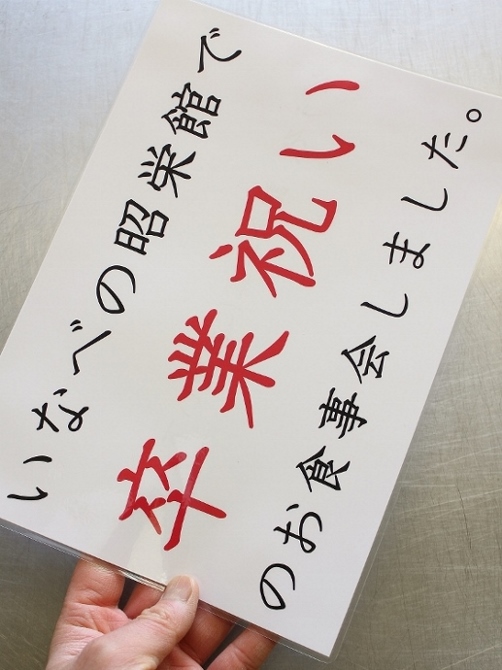 いなべの昭栄館で
卒業祝い
のお食事会しました。